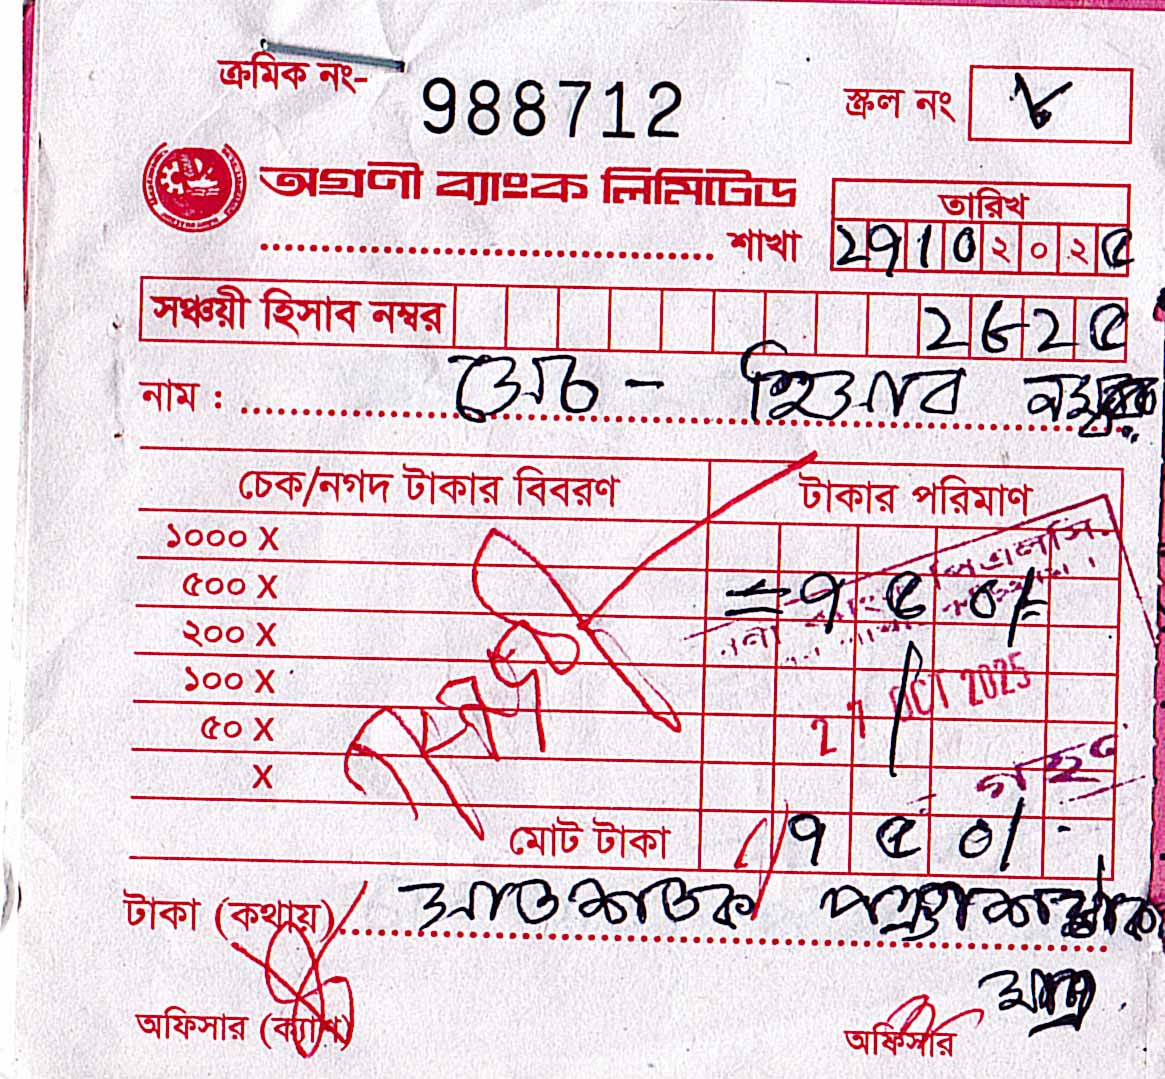 ক্রমিক নং- 988712
স্ক্রল নং ৮
অগ্রণী ব্যাংক লিমিটেড
শাখা
তারিখ
২৭১০২০২৫
সঞ্চয়ী হিসাব নম্বর ২৮২৫
নাম : হিসাব নম্বর
চেক/নগদ টাকার বিবরণ টাকার পরিমাণ
১০০০ X
৫০০ X =৭৫০/=
২০০ X
১০০ X
৫০ X
X
পিএলসি.
27 OCT 2025
মোট টাকা ৭৫০/-
টাকা (কথায়) সাতশতক পঞ্চাশ টাকা
মাত্র
অফিসার (ক্যাশ) অফিসার